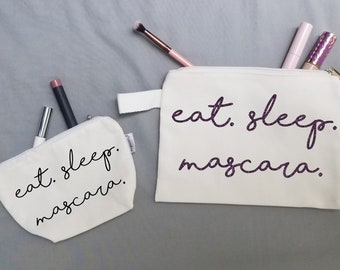 eat. sleep.
mascara.
eat. sleep.
mascara.